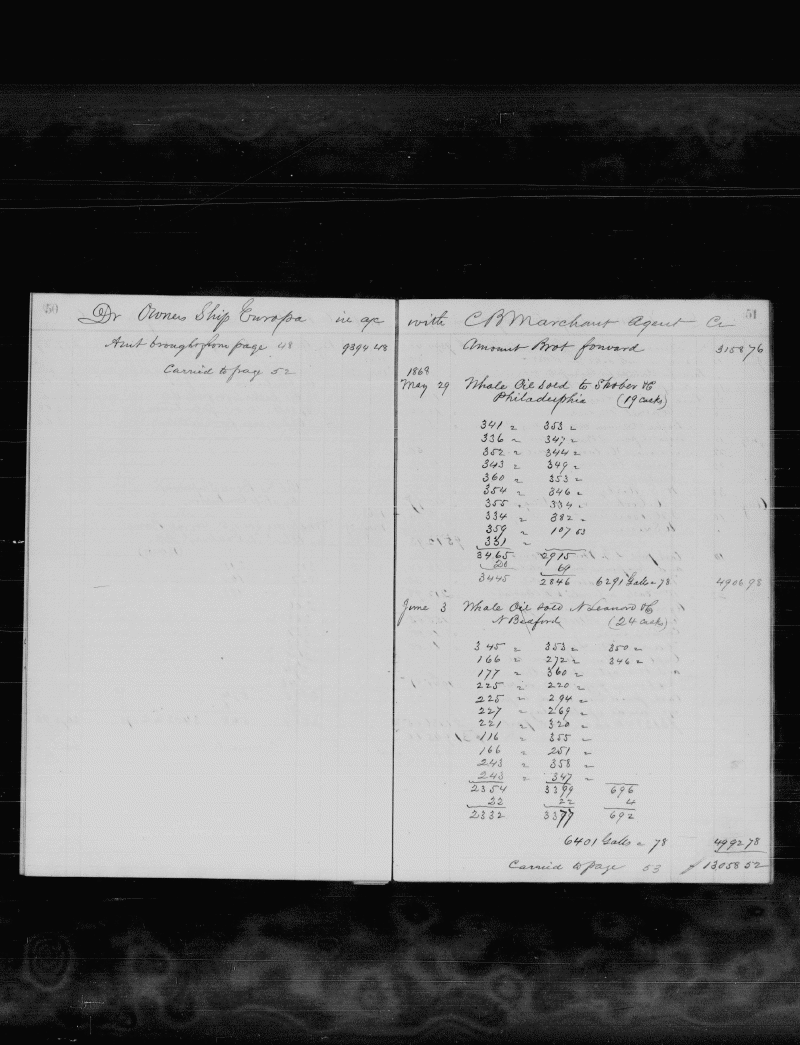 50
Dr Owners Ship Europa in a/c
Amt brought from page 48 9394 48
Carried to page 52
51
with C B Marchant Agent Cr
Amount Brot forward 3158 76
1868
May 29 Whale Oil sold to Shober & C
Philadelphia (19 casks)
341 " 353 "
336 " 347 "
352 " 344 "
343 " 349 "
360 " 353 "
354 " 346 "
355 " 334 "
334 " 382 "
359 " 107 53
331 "
3465 2915
20 69
3445 2846 6291 Galls " 78 4906 98
June 3 Whale Oil sold N Leanord & C
N Bedford (24 casks)
345 " 353 " 350 "
166 " 272 " 346 "
177 " 360 "
225 " 220 "
225 " 294 "
227 " 269 "
221 " 320 "
116 " 355 "
166 " 251 "
243 " 358 "
243 " 347 "
2354 3399 696
22 22 4
2332 3377 692
6401 Galls " 78 4992 78
Carried to page 53 13058 52